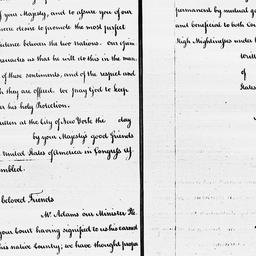 f your Majesty, and to assure you of our
cere desire to promote the most perfect
fidence between the two nations. Our
ersuades us that he will do this in the man
of these sentiments, and of the respect and
h they are offered. We pray God to keep
er his holy Protection.
ritten at the City of New York the day
by your Majesty's good Friends
e United States of America in Congress Af
embled.
beloved Friends
Mr. Adams our Minister Ple
your Court having signified to us his earnest
his native Country; we have thought proper
permanent by mutual g
and beneficial to both Cou
High Mightinesses under t
Writt
of
States